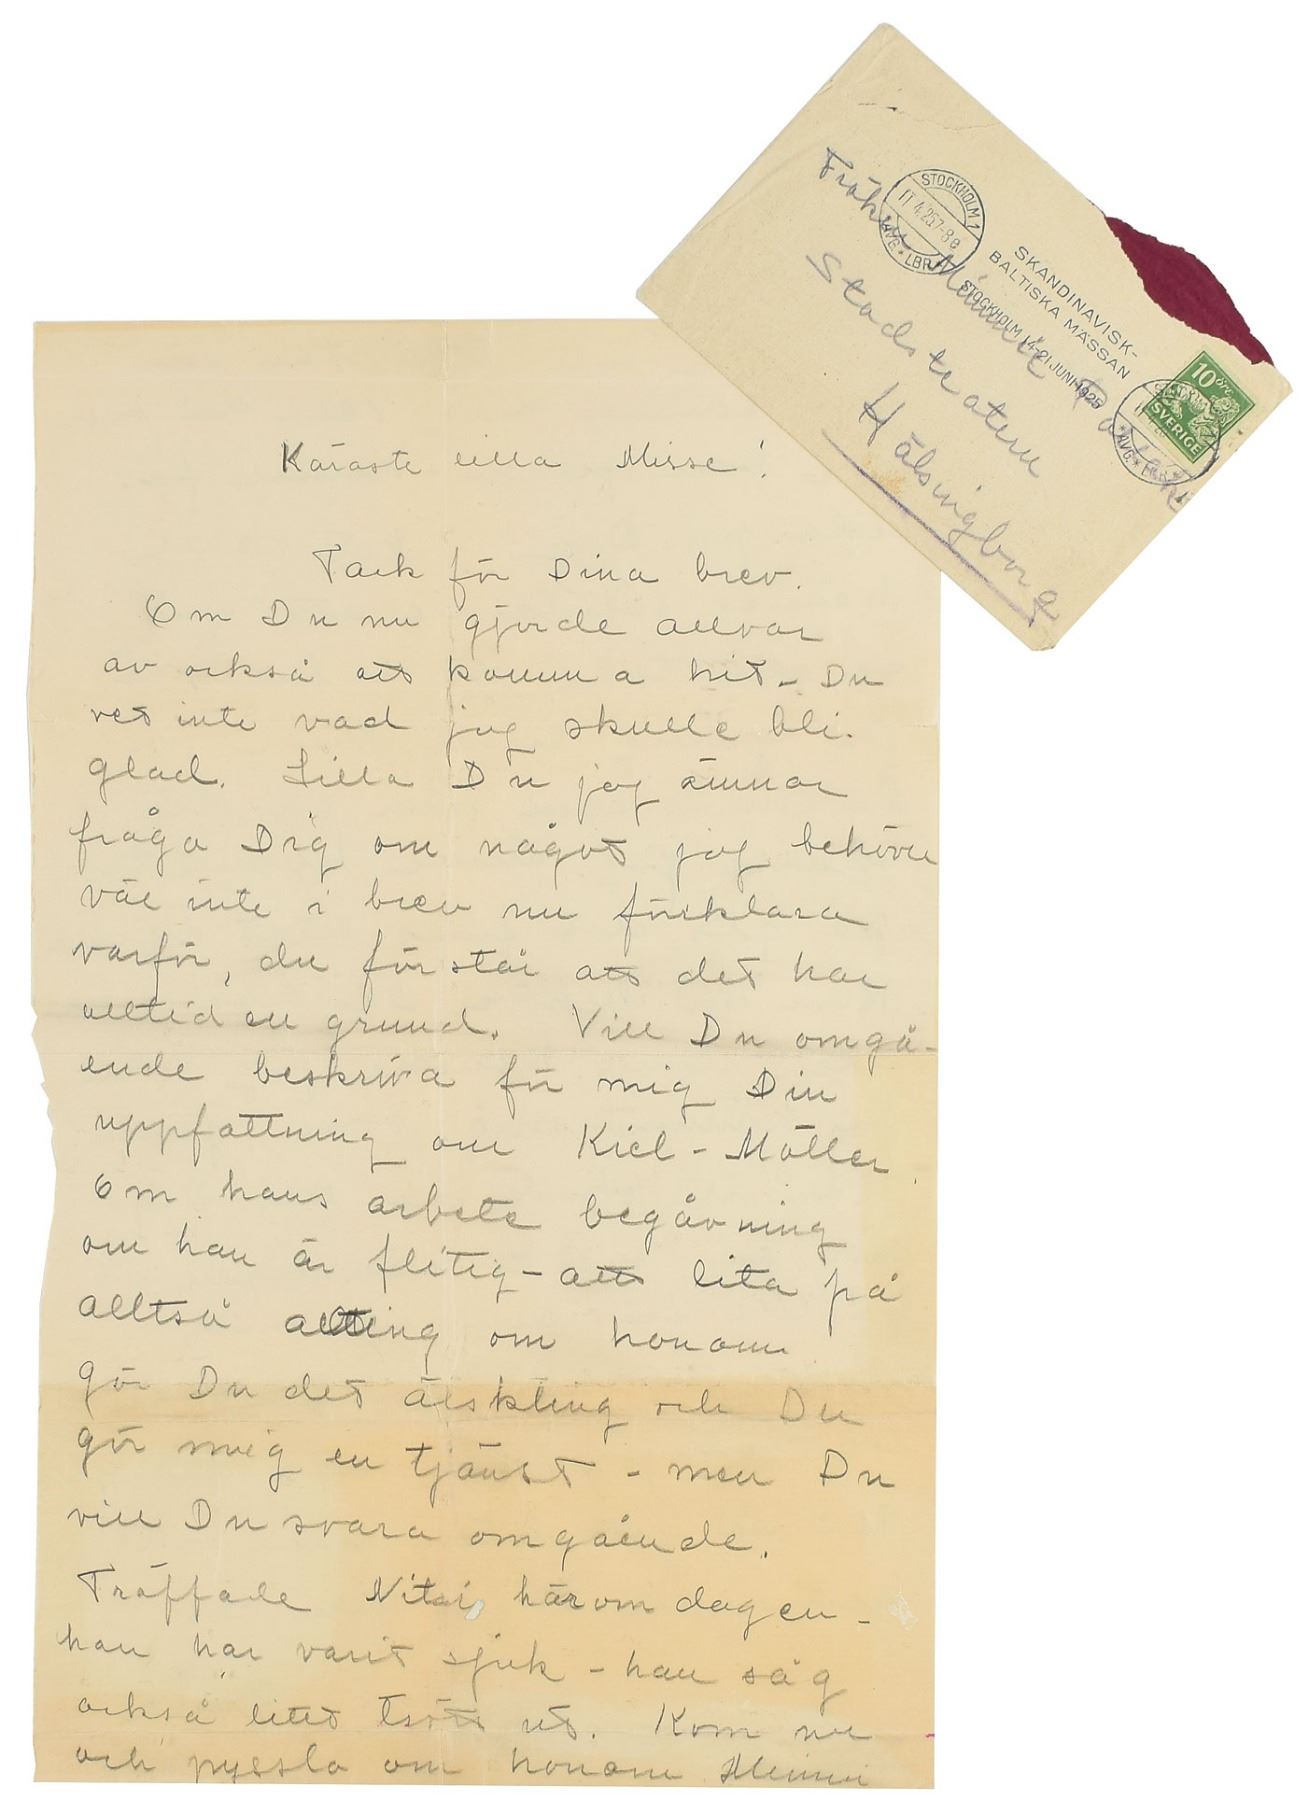 STOCKHOLM 1
17.4.25 7-8 e
AVG. LBR.
SKANDINAVISK-
BALTISKA MÄSSAN
STOCKHOLM 14-21 JUNI 1925
10 öre
SVERIGE
Fröken
Stadsteatern
Hälsingborg
Käraste lilla Misse!
Tack för Dina brev.
Om Du nu gjorde allvar
av också att komma hit – Du
vet inte vad jag skulle bli
glad. Lilla Du jag ämnar
fråga Dig om något jag behöver
väl inte i brev nu förklara
varför, du förstår att det har
alltid en grund. Vill Du omgå-
ende beskriva för mig Din
uppfattning om Kiel-Möller
Om hans arbete begåvning
om han är flitig – att lita på
alltså allting om honom
gör Du det älskling och Du
gör mig en tjänst – men Du
vill Du svara omgående.
Träffade häromdagen –
han har varit sjuk – han såg
också litet trött ut. Kom nu
och pyssla om honom Mimmi